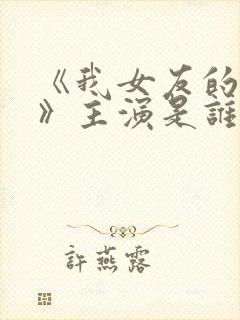 《我女友的
》主演是誰
許燕露